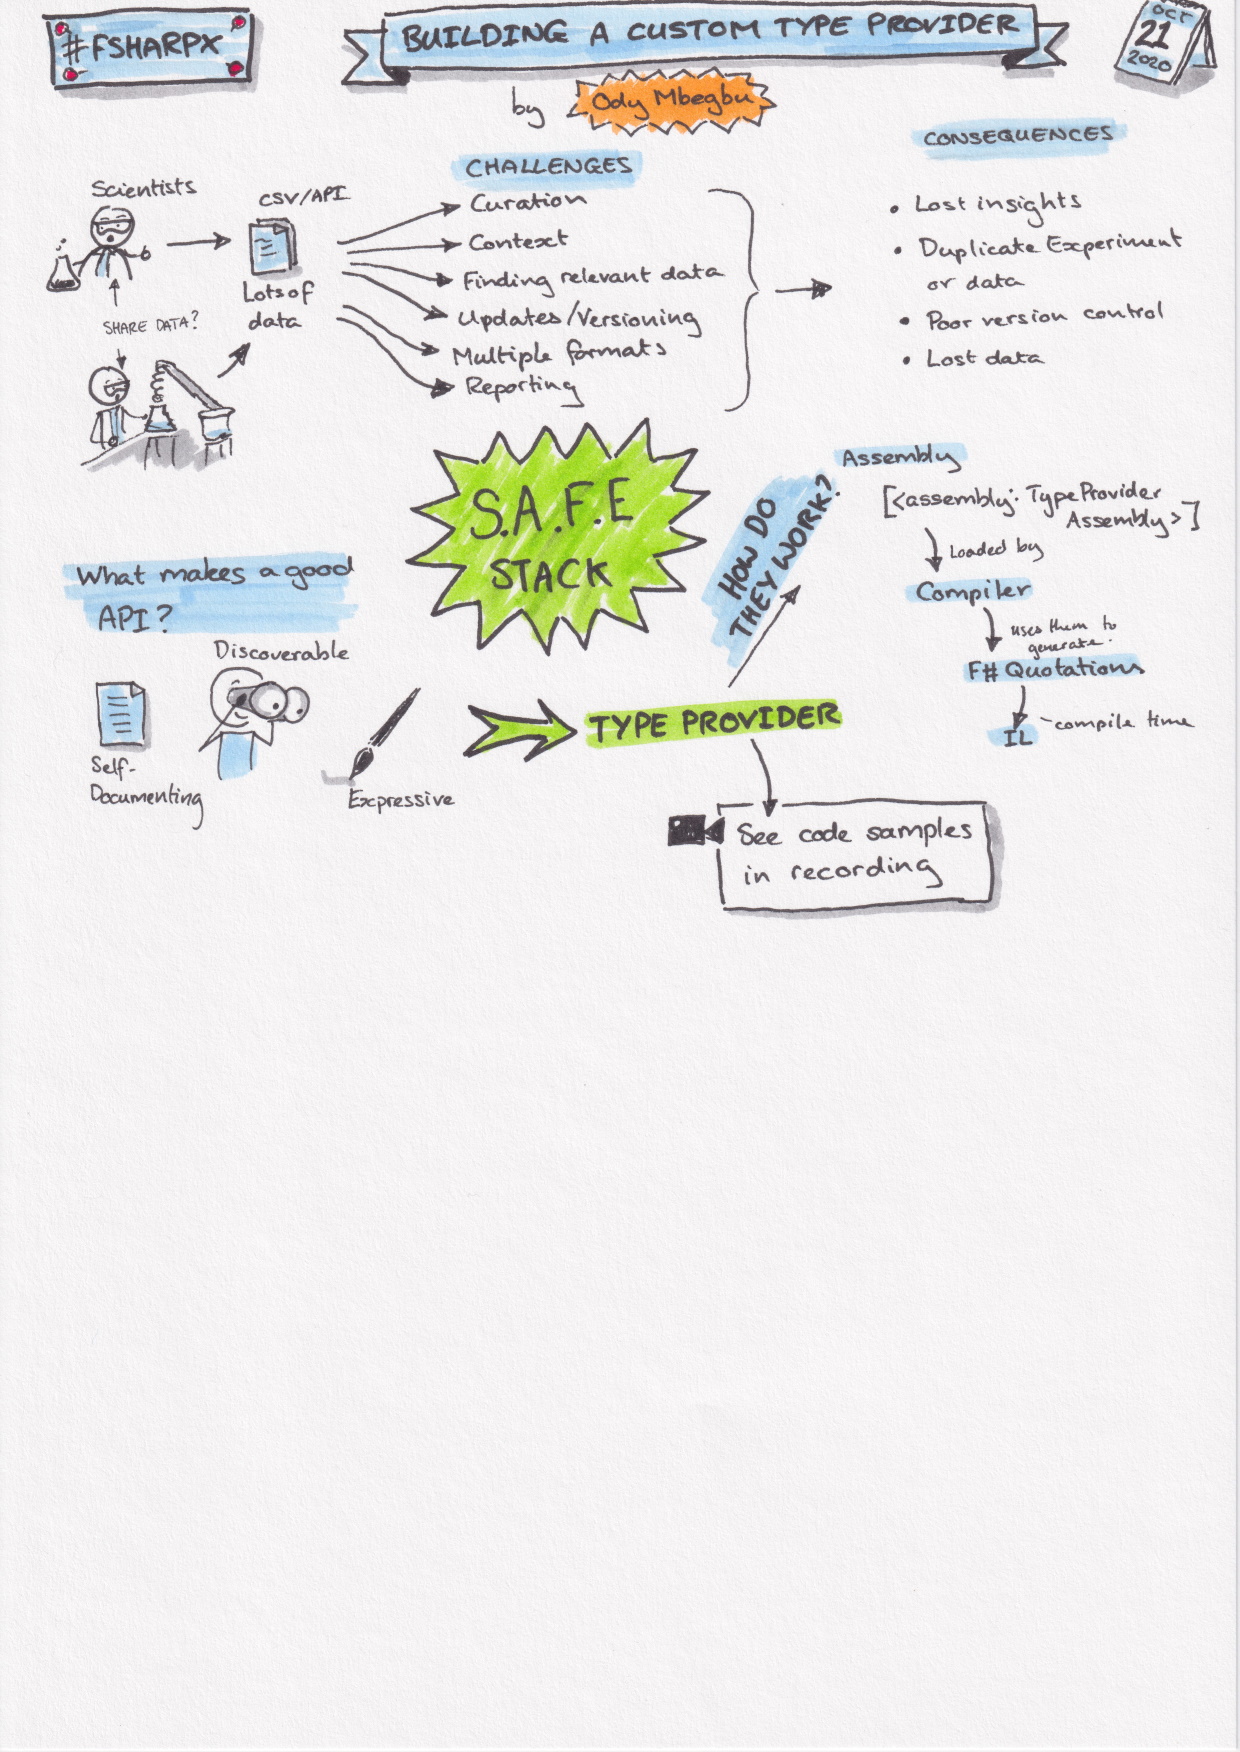 #FSHARPX
BUILDING A CUSTOM TYPE PROVIDER
OCT
21
2020
by Ody Mbegbu
Scientists
SHARE DATA?
CSV/API
Lots of
data
CHALLENGES
Curation
Context
Finding relevant data
Updates/Versioning
Multiple formats
Reporting
CONSEQUENCES
• Lost insights
• Duplicate Experiment
or data
• Poor version control
• Lost data
S.A.F.E
STACK
What makes a good
API?
Self-
Documenting
Discoverable
Expressive
TYPE PROVIDER
HOW DO
THEY WORK?
Assembly
[<assembly: TypeProvider
Assembly>]
Loaded by
Compiler
uses them to
generate.
F# Quotations
IL
- compile time
See code samples
in recording